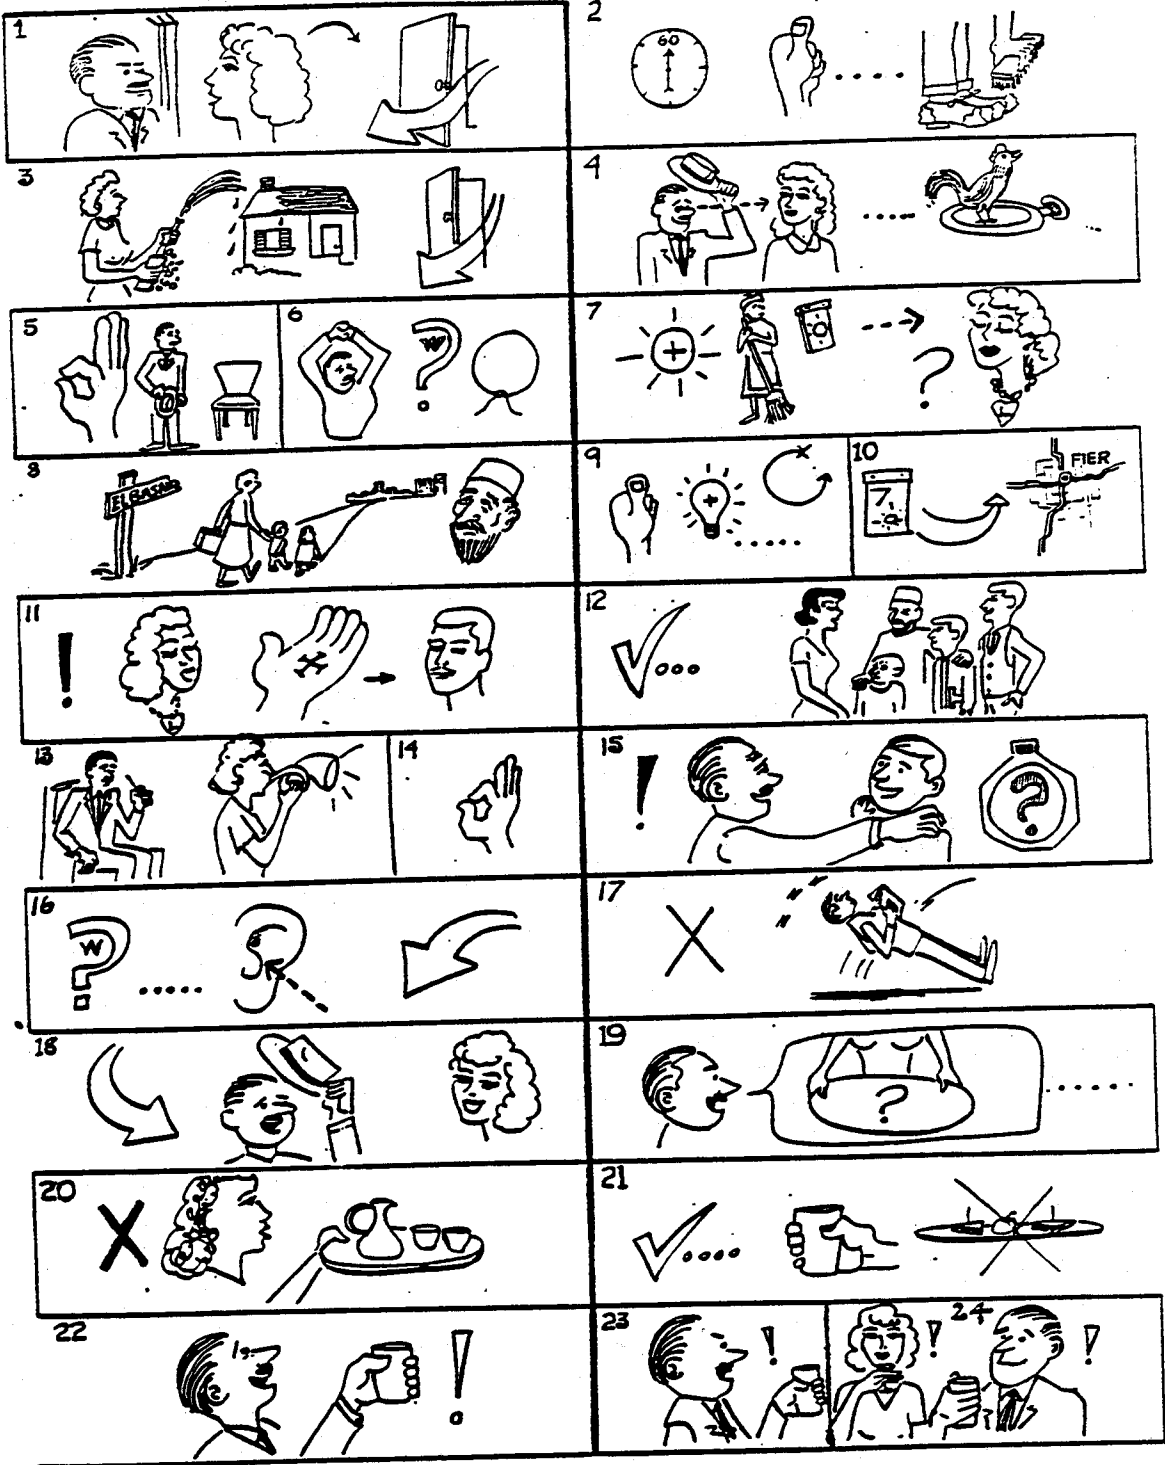 1
2
60
3
4
5
6
W
7
8
ELBASAN
9
10
7
FIER
11
12
13
14
15
16
W
17
18
19
20
21
22
23
24